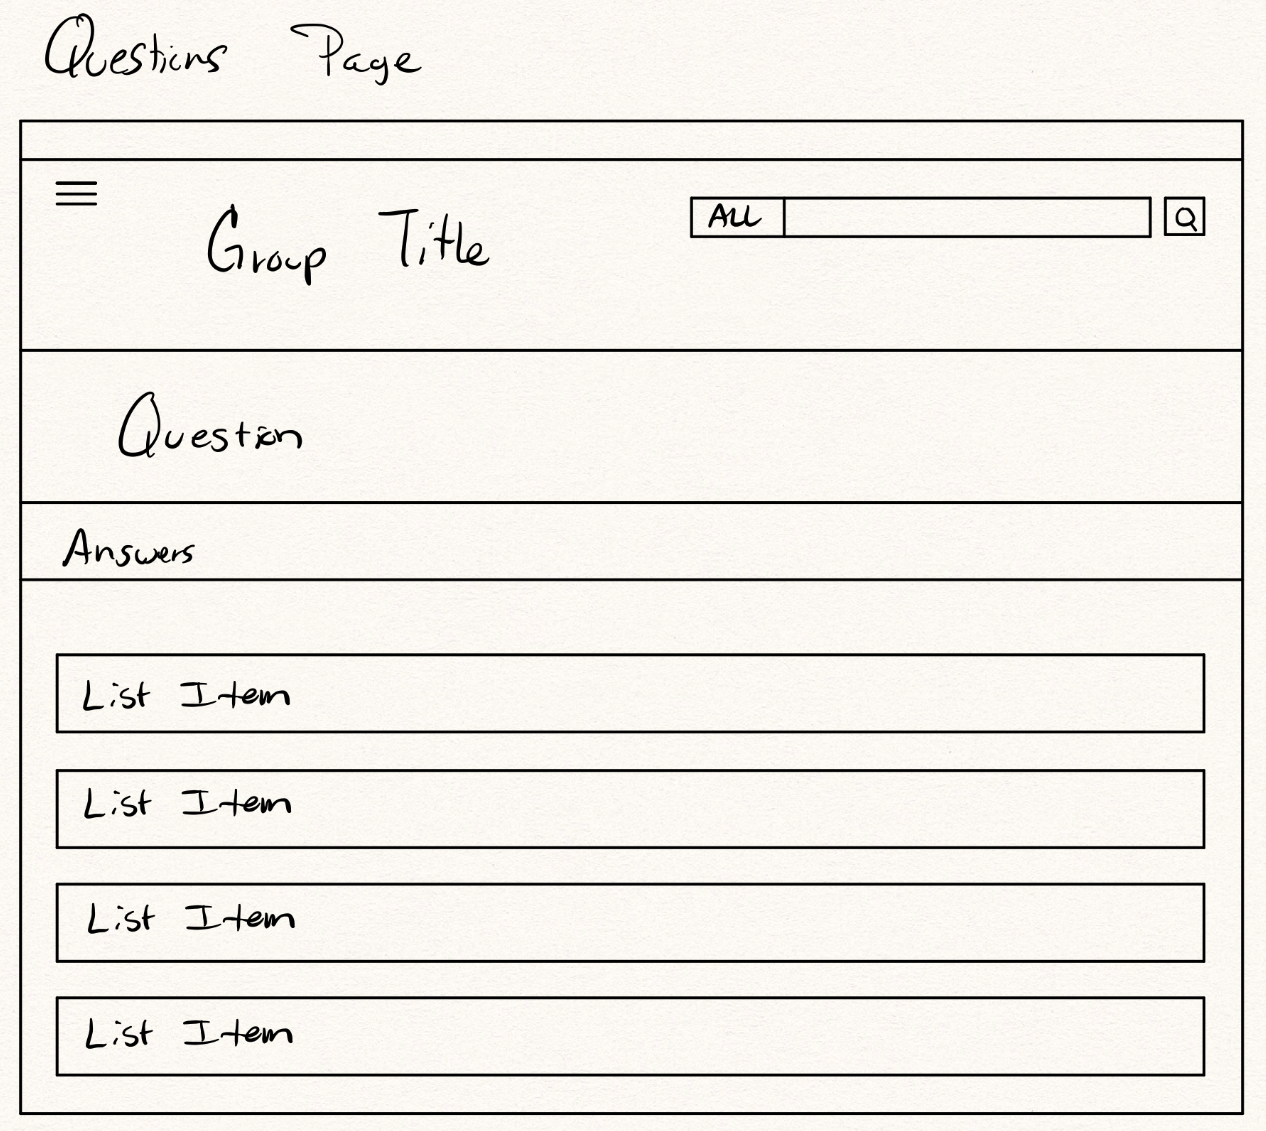 Questions Page
Group Title
ALL
Question
Answers
List Item
List Item
List Item
List Item